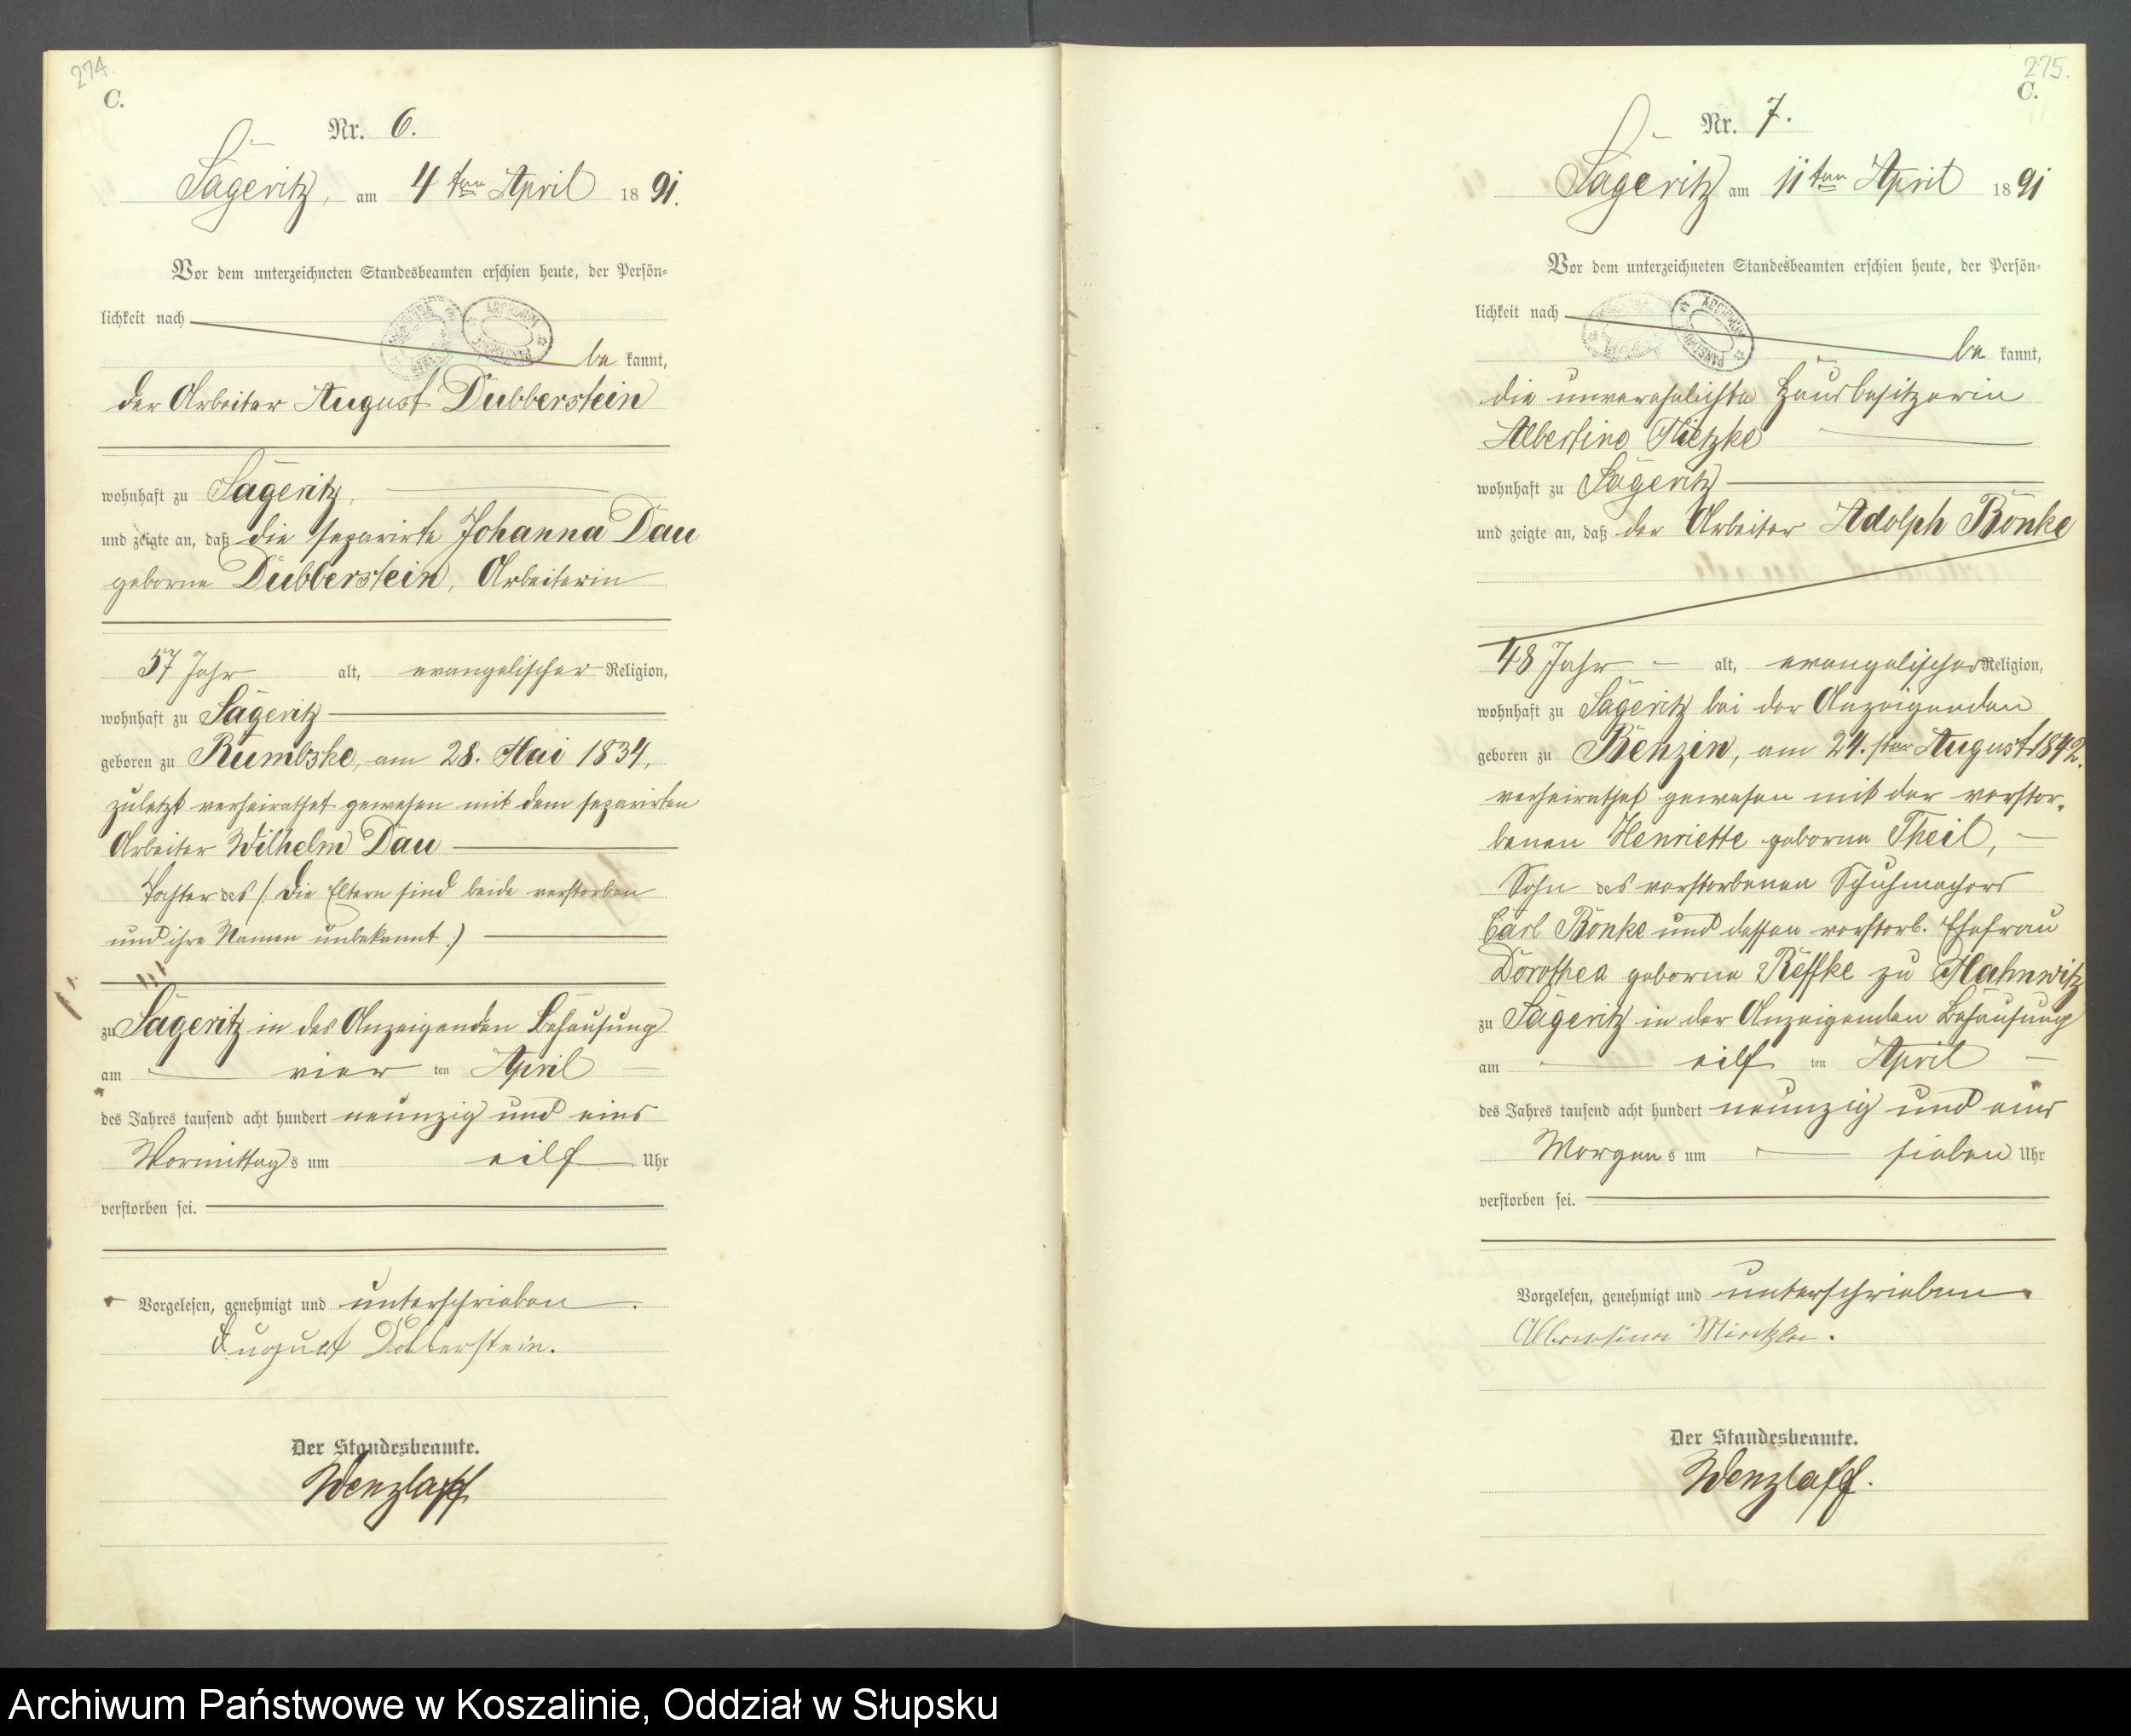 274.
C.
Nr. 6.
Sageritz, am 4ten April 1891.
Vor dem unterzeichneten Standesbeamten erschien heute, der Persön-
lichkeit nach
be kannt,
der Arbeiter August Dubberstein
wohnhaft zu Sageritz,
und zeigte an, daß die separirte Johanna Dau
geborne Dubberstein, Arbeiterin
57 Jahr alt, evangelischer Religion,
wohnhaft zu Sageritz
geboren zu Rumbske, am 28. Mai 1834,
zuletzt verheirathet gewesen mit dem separirten
Arbeiter Wilhelm Dau
Tochter des /: Die Eltern sind beide verstorben
und ihre Namen unbekannt :)
zu Sageritz in des Anzeigenden Behausung
am vier ten April
des Jahres tausend acht hundert neunzig und eins
Vormittags um eilf Uhr
verstorben sei.
Vorgelesen, genehmigt und unterschrieben.
August
Der Standesbeamte.
Wenzlaff
275.
C.
Nr. 7.
Sageritz am 11ten April 1891
Vor dem unterzeichneten Standesbeamten erschien heute, der Persön-
lichkeit nach
be kannt,
die unverehelichte Hausbesitzerin
Albertine
wohnhaft zu Sageritz
und zeigte an, daß der Arbeiter Adolph Bönke
48 Jahr alt, evangelischer Religion,
wohnhaft zu Sageritz bei der Anzeigenden
geboren zu Benzin, am 24.sten August 1842.
verheirathet gewesen mit der verstor-
benen Henriette geborne Theil,
Sohn des verstorbenen Schuhmachers
Carl Bönke und dessen verstorb. Ehefrau
Dorothea geborne Reffke zu Mahnwitz
zu Sageritz in der Anzeigenden Behausung
am eilf ten April
des Jahres tausend acht hundert neunzig und eins
Morgens um sieben Uhr
verstorben sei.
Vorgelesen, genehmigt und unterschrieben.
Der Standesbeamte.
Wenzlaff.
Archiwum Państwowe w Koszalinie, Oddział w Słupsku